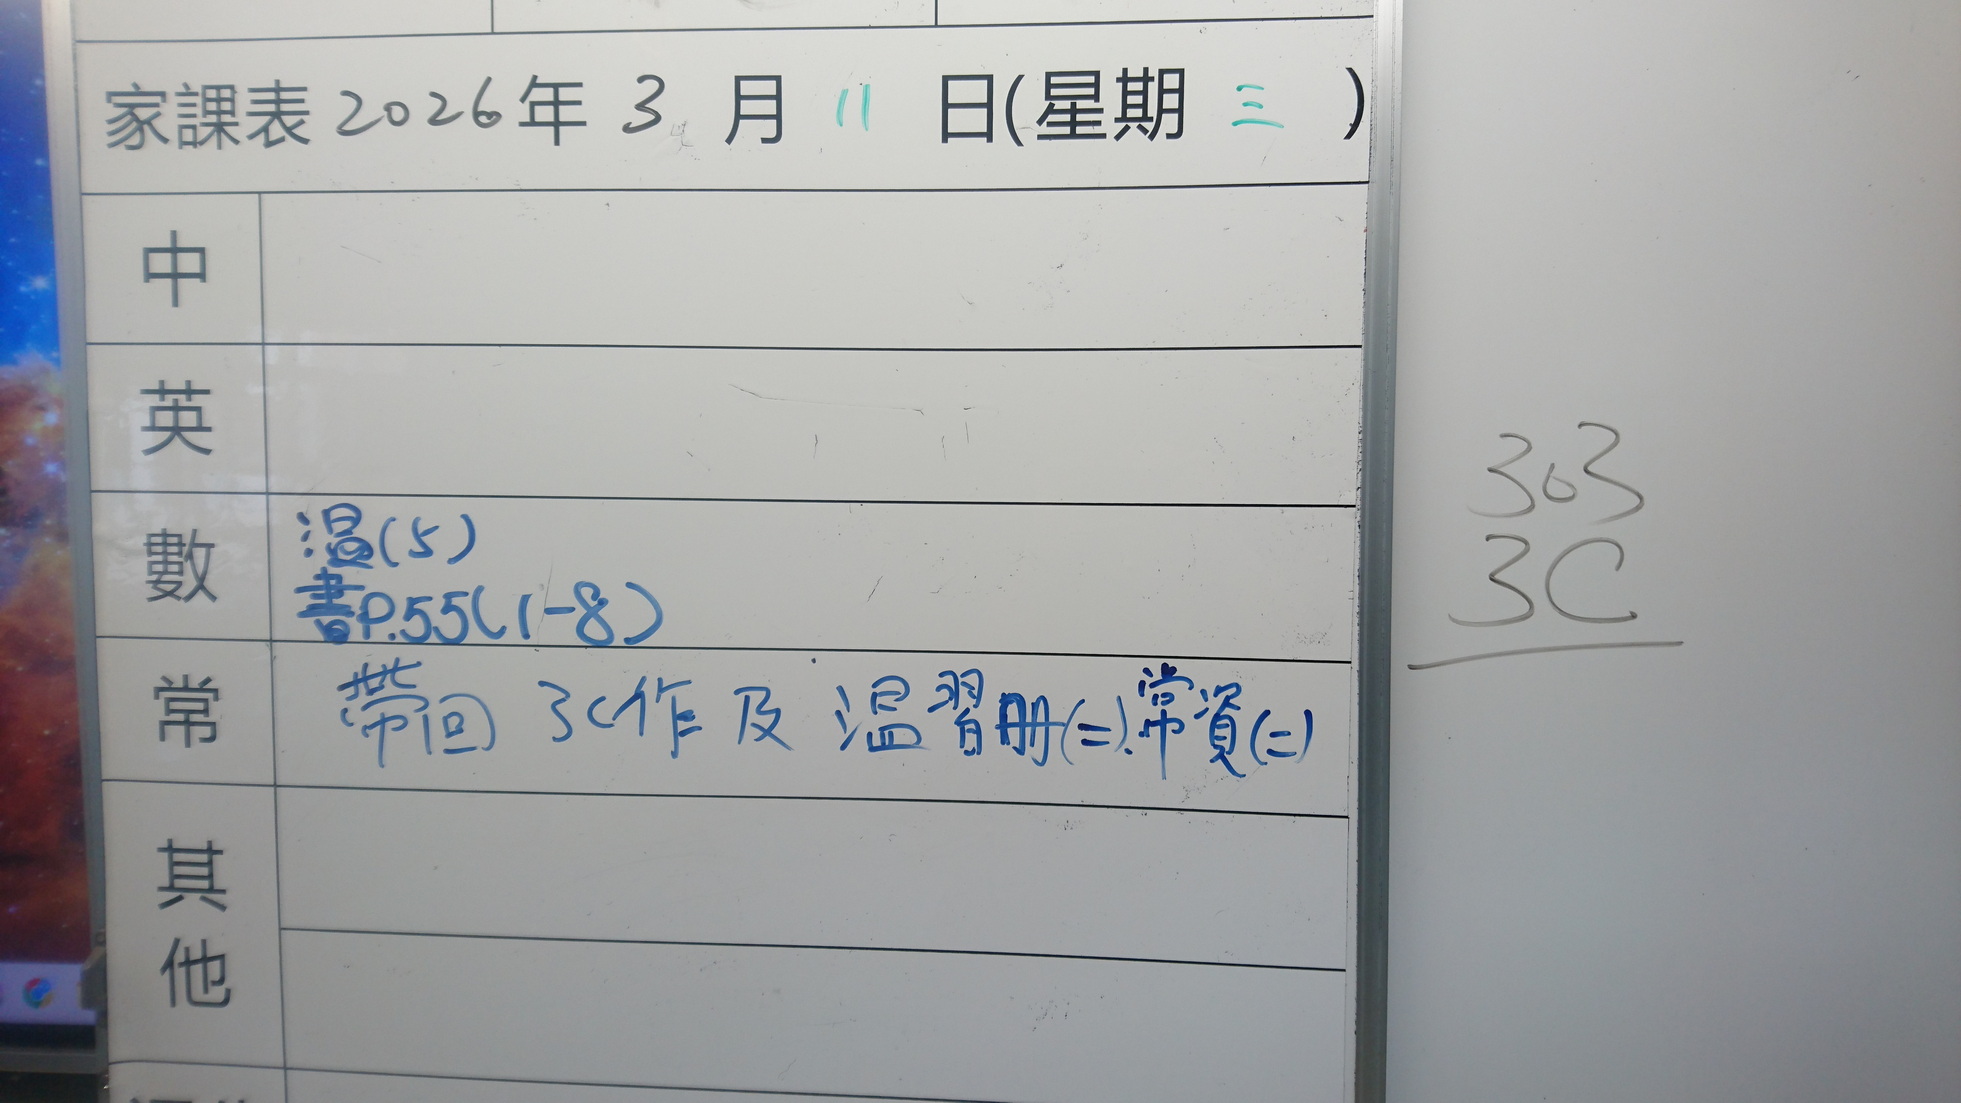 家課表2026年 3 月 11 日(星期 三 )
中
英
數
溫(5)
書P.55(1-8)
常
帶回 3C作及 溫習册(二).常資(二)
其
他
303
3C